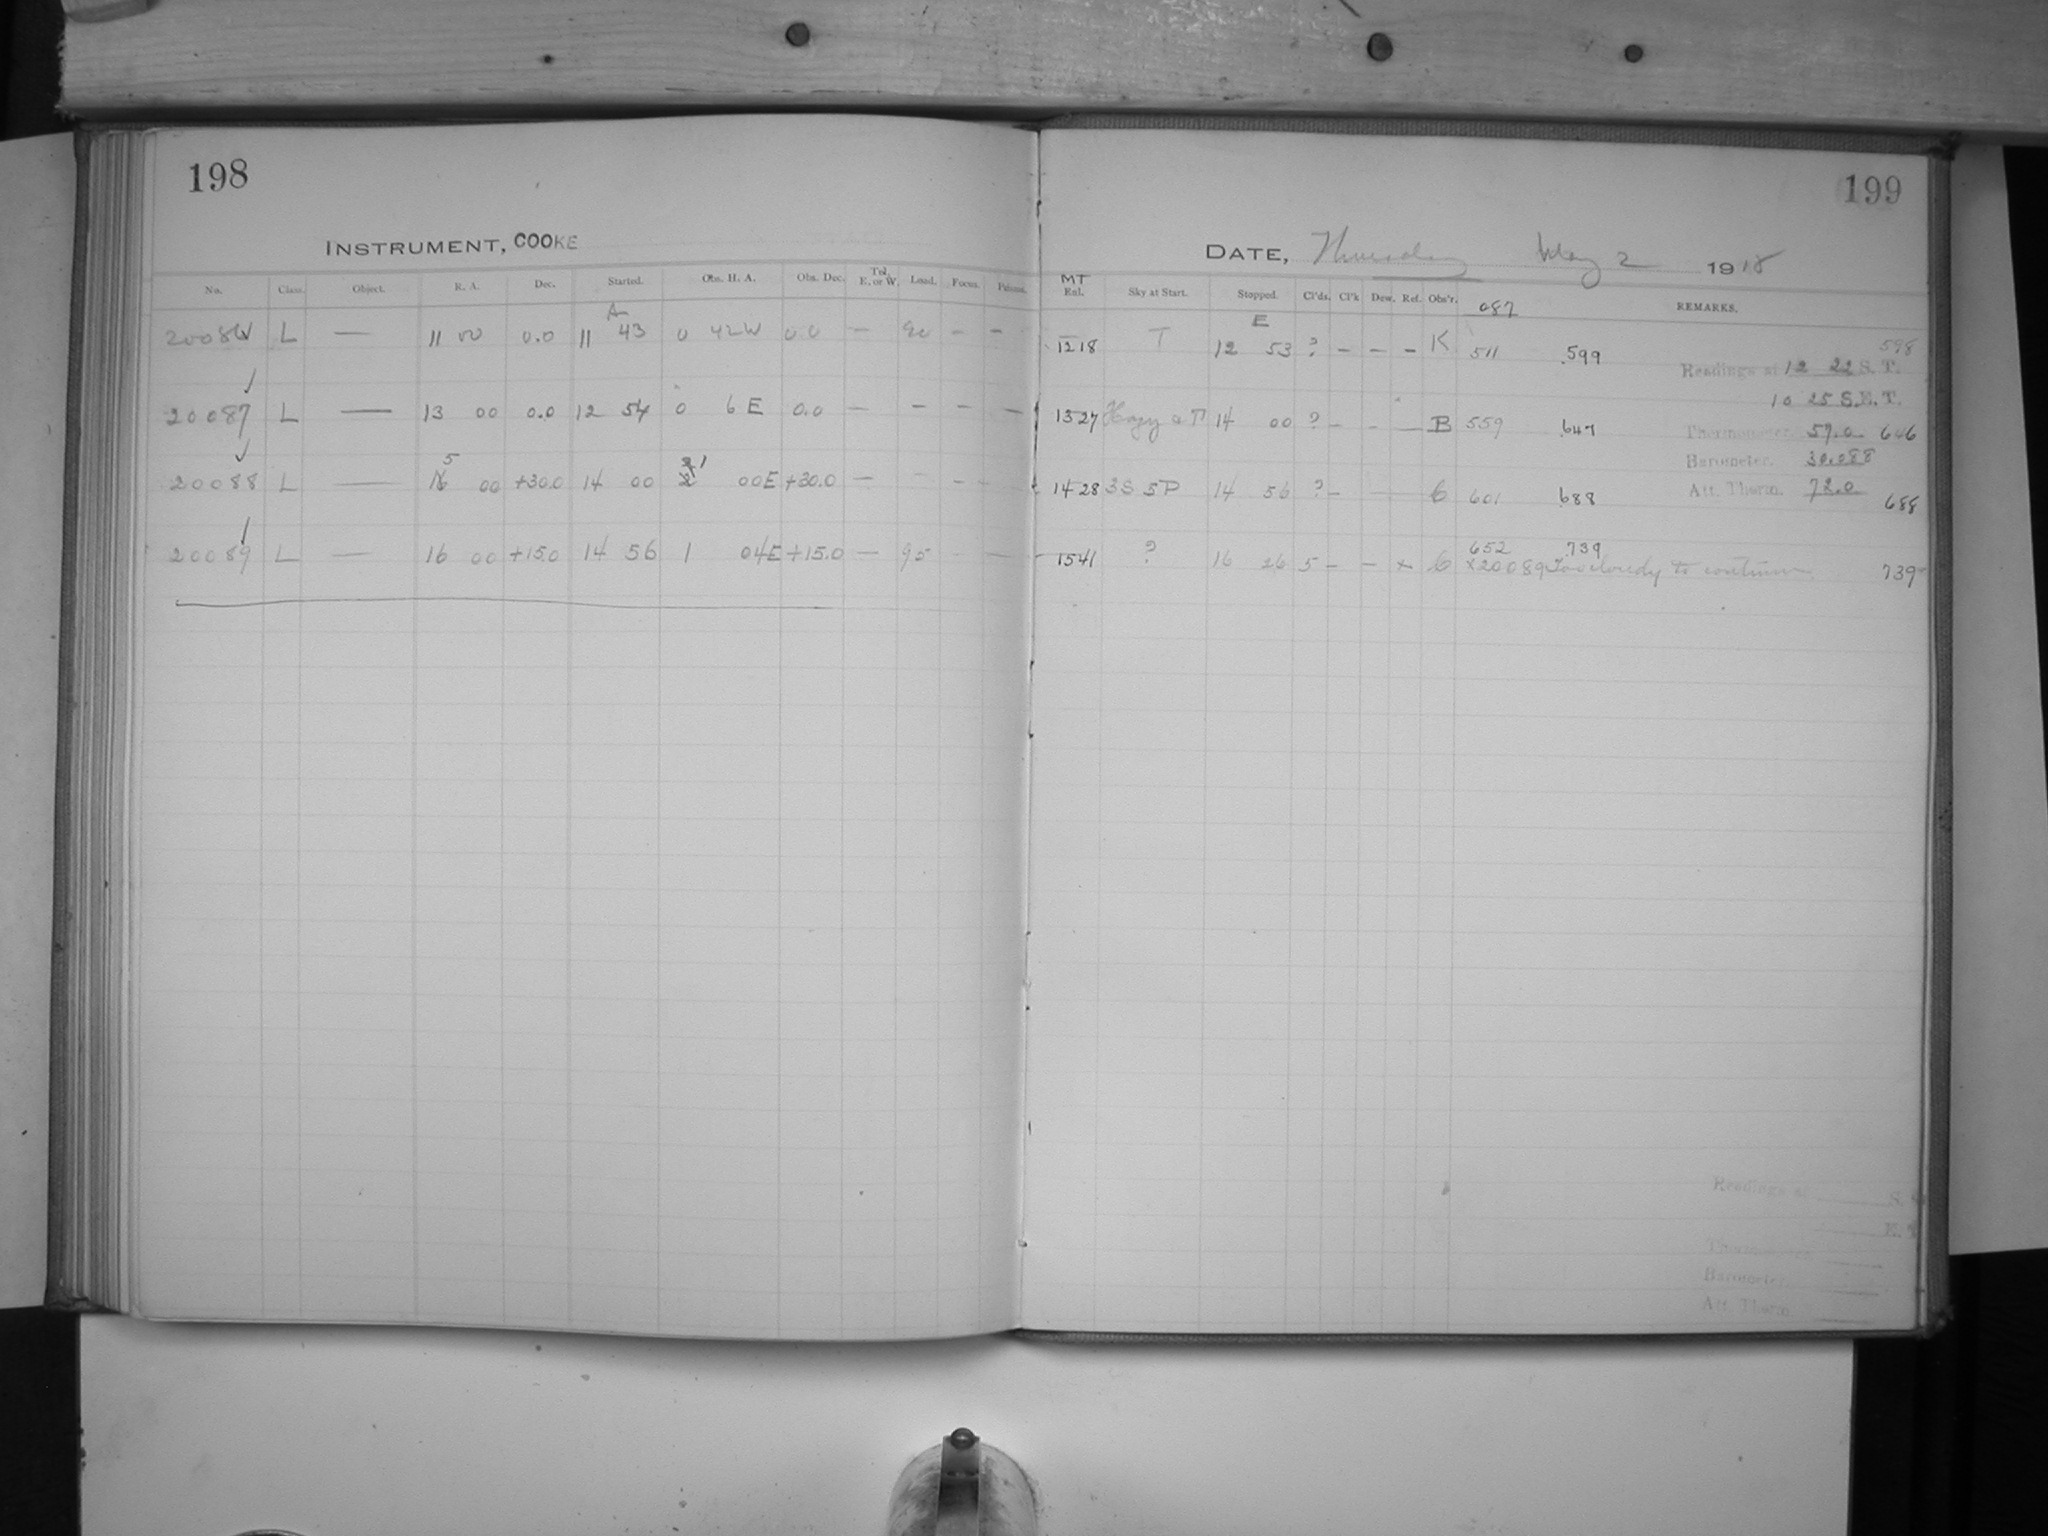 198
INSTRUMENT, COOKE
No. Class. Object. R. A. Dec. Started. Obs. H. A. Obs. Dec. Tel. E. or W. Load. Focus.
L — 11 00 0.0 11 43 0 42W 0.0 — — —
20087 L — 13 00 0.0 12 54 0 6 E 0.0 — — — —
20088 L — 00 +30.0 14 00 00E +30.0 — —
20089 L — 16 00 +15.0 14 56 1 04E +15.0 — 95 — —
199
DATE, Thursday May 2 1918
MT
Exl. Sky at Start. Stopped. Cl'ds. Cl'k Dew. Ref. Obs'r. 087 REMARKS.
E
1218 T 12 53 ? — — — K 511 .599 598
Readings at 12 22 S. T.
10 25 S.E.T.
1327 Hazy 14 00 ? — - — B 559 .647
Thermometer. 59.0 646
Barometer. 30.088
1428 3S 5P 14 56 ? — — 6 601 .688
Att. Therm. 72.0 688
1541 ? 16 26 5 — — × 6 652 .739
×20089 Too cloudy to continue 739
Readings at S.
E.
Thermometer.
Barometer.
Att. Therm.